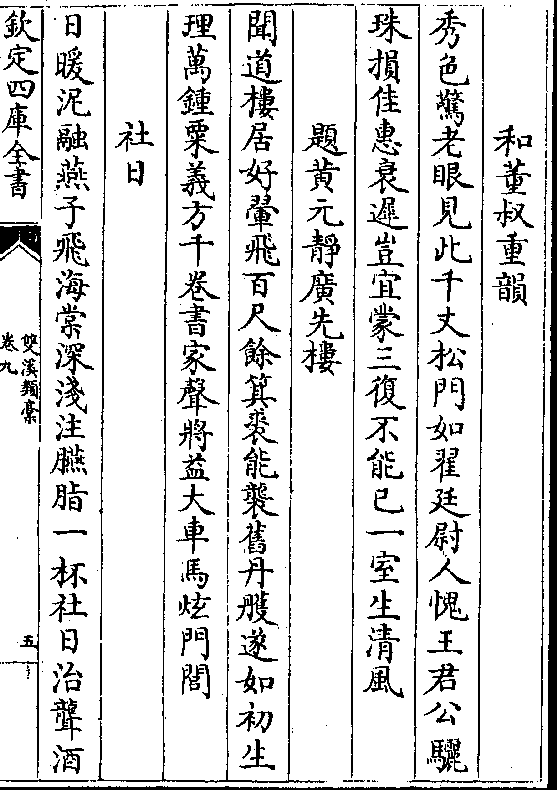 和董叔重韻
秀色驚老眼見此千丈松門如翟廷尉人愧王君公驪
珠損佳惠衰遲豈宜蒙三復不能已一室生清風
題黄元靜廣先樓
聞道樓居好翬飛百尺餘箕裘能襲舊丹雘遂如初生
理萬鍾粟義方千卷書家聲將益大車馬炫門閭
社日
日暖泥融燕子飛海棠深淺注臙脂一杯社日治聾酒
欽定四庫全書
雙溪類稾
卷九
五